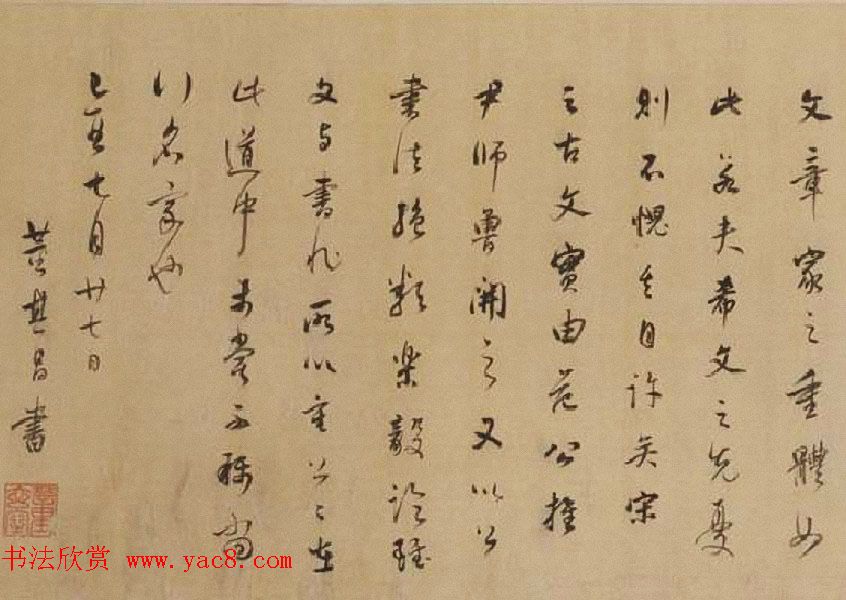 文章家之重體如
此若夫希文之先憂
則不愧其自許矣宋
之古文實由范公推
尹師魯開之又以公
書法絕類樂毅論雖
文与書非所以重公公在
此道中未嘗不稱當
行名家也
己亥七月廿七日
董其昌書
书法欣赏 www.yac8.com